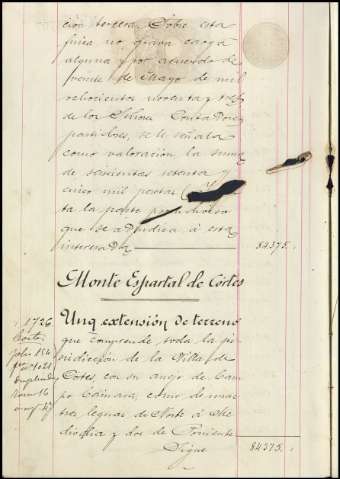 ción tercera. Sobre esta
finca no grava carga
alguna y por acuerdo de
veinte de Mayo de mil
ochocientos noventa y tres
de los Señores Contadores
partidores, se le señala
como valoración la suma
de seiscientas setenta y
cinco mil pesetas
ta la parte proindiviso
que se adjudica á esta
interesada 84375.
Monte Espartal de Cortes
1726
Una extensión de terreno
que comprende toda la ju
risdicción de la Villa de
Cortes, con su anejo de Cam
po Cámara, como de unas
tres leguas de Norte á Me
diodia y dos de Poniente
Sigue 84375.